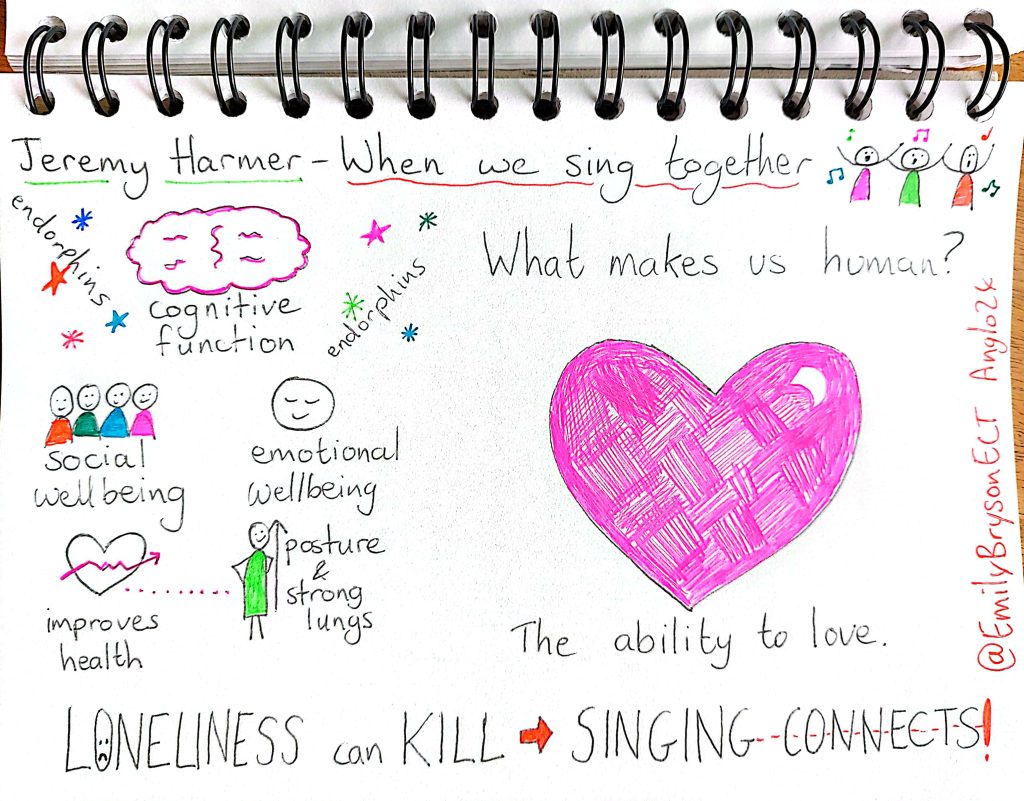 Jeremy Harmer - When we sing together
endorphins
cognitive
function
endorphins
What makes us human?
social
wellbeing
emotional
wellbeing
improves
health
posture
&
strong
lungs
The ability to love.
LONELINESS can KILL → SINGING--CONNECTS!
@EmilyBrysonELT Anglo24